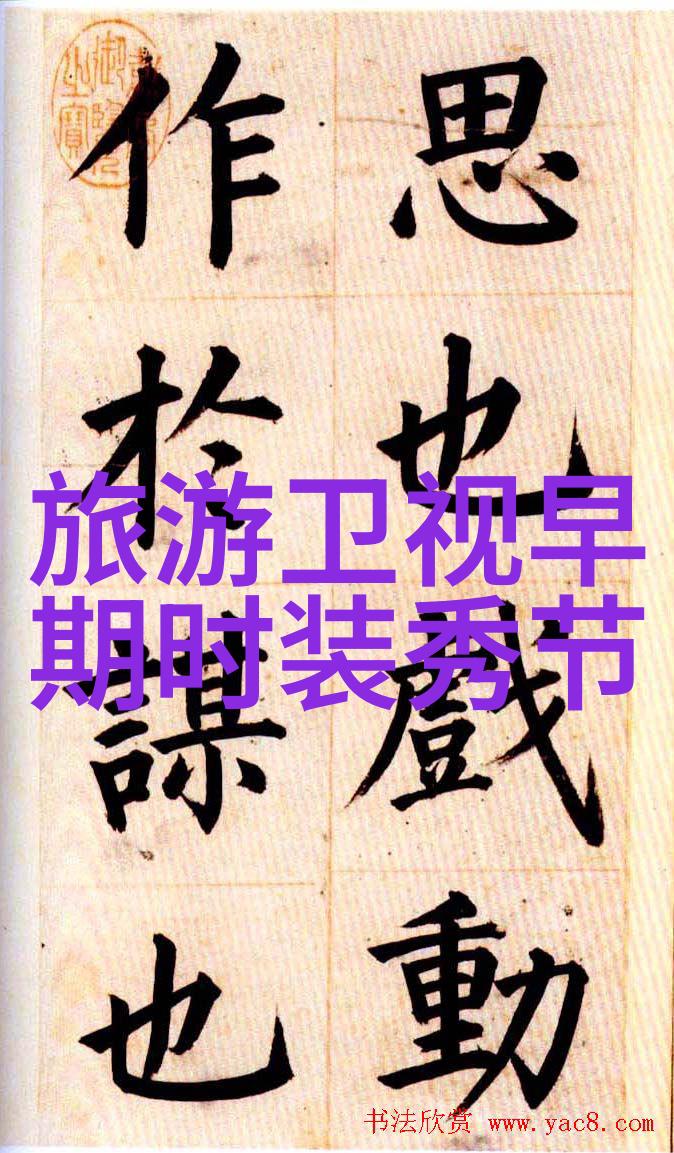 思也戲動
作於謀也
旅游卫视早
期时装秀节
书法欣赏 www.yac8.com